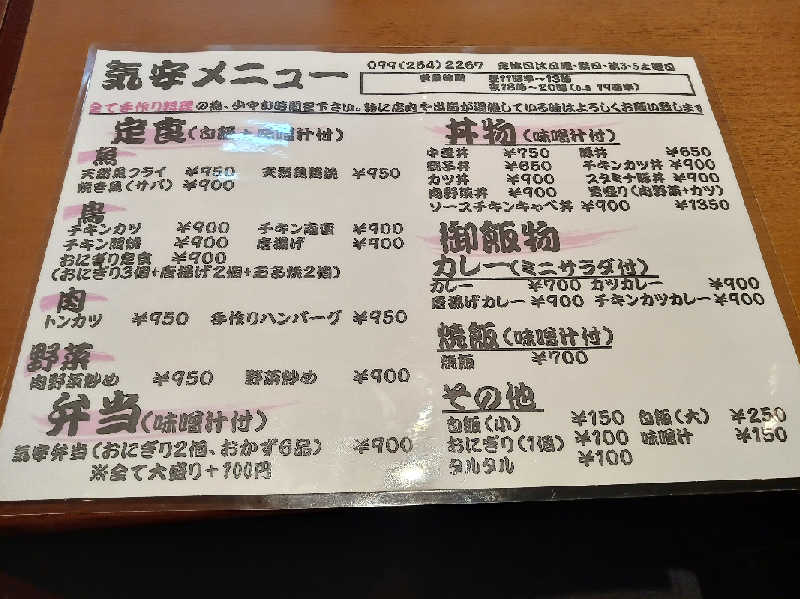 気安メニュー
099(254)2267 定休日は日曜・祭日・第3・5土曜日
営業時間 昼11時半~13時
夜18時~20時(o.s 19時半)
全て手作り料理の為、少々お時間を下さい。特に店内を出前が混雑している時はよろしくお願い致します
定食(白飯+味噌汁付)
魚
天然魚フライ ¥950 天然魚開焼 ¥950
焼き魚(サバ) ¥900
鳥
チキンカツ ¥900 チキン南蛮 ¥900
チキン開焼 ¥900 唐揚げ ¥900
おにぎり定食 ¥900
(おにぎり3個+唐揚げ2個+玉子焼2個)
肉
トンカツ ¥950 手作りハンバーグ ¥950
野菜
肉野菜炒め ¥950 野菜炒め ¥900
弁当(味噌汁付)
気安弁当(おにぎり2個、おかず6品) ¥900
※全て大盛り+100円
丼物(味噌汁付)
中華丼 ¥750 豚丼 ¥650
親子丼 ¥650 チキンカツ丼 ¥900
カツ丼 ¥900 スタミナ豚丼 ¥900
肉野菜丼 ¥900 悪盛り(肉野菜+カツ)
ソースチキンキャベ丼 ¥900 ¥1350
御飯物
カレー(ミニサラダ付)
カレー ¥700 カツカレー ¥900
唐揚げカレー ¥900 チキンカツカレー ¥900
焼飯(味噌汁付)
焼飯 ¥700
その他
白飯(小) ¥150 白飯(大) ¥250
おにぎり(1個) ¥100 味噌汁 ¥150
タルタル ¥100